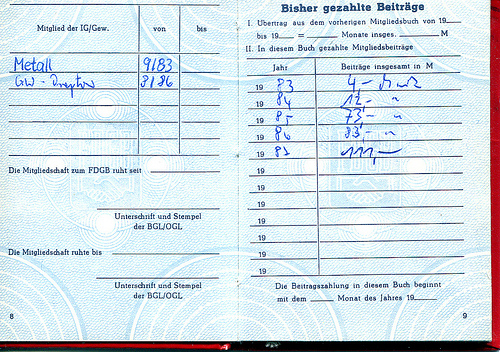 Mitglied der IG/Gew.
von
bis
Metall 9/83
GW - 3/86
Die Mitgliedschaft zum FDGB ruht seit
Unterschrift und Stempel
der BGL/OGL
Die Mitgliedschaft ruhte bis
Unterschrift und Stempel
der BGL/OGL
8
Bisher gezahlte Beiträge
I. Übertrag aus dem vorherigen Mitgliedsbuch von 19
bis 19 = Monate insges. M
II. In diesem Buch gezahlte Mitgliedsbeiträge
Jahr
Beiträge insgesamt in M
19 83 4,-
19 84 12,- "
19 85 73,- "
19 86 83,- "
19 111,-
19
19
19
19
19
19
19
Die Beitragszahlung in diesem Buch beginnt
mit dem Monat des Jahres 19
9